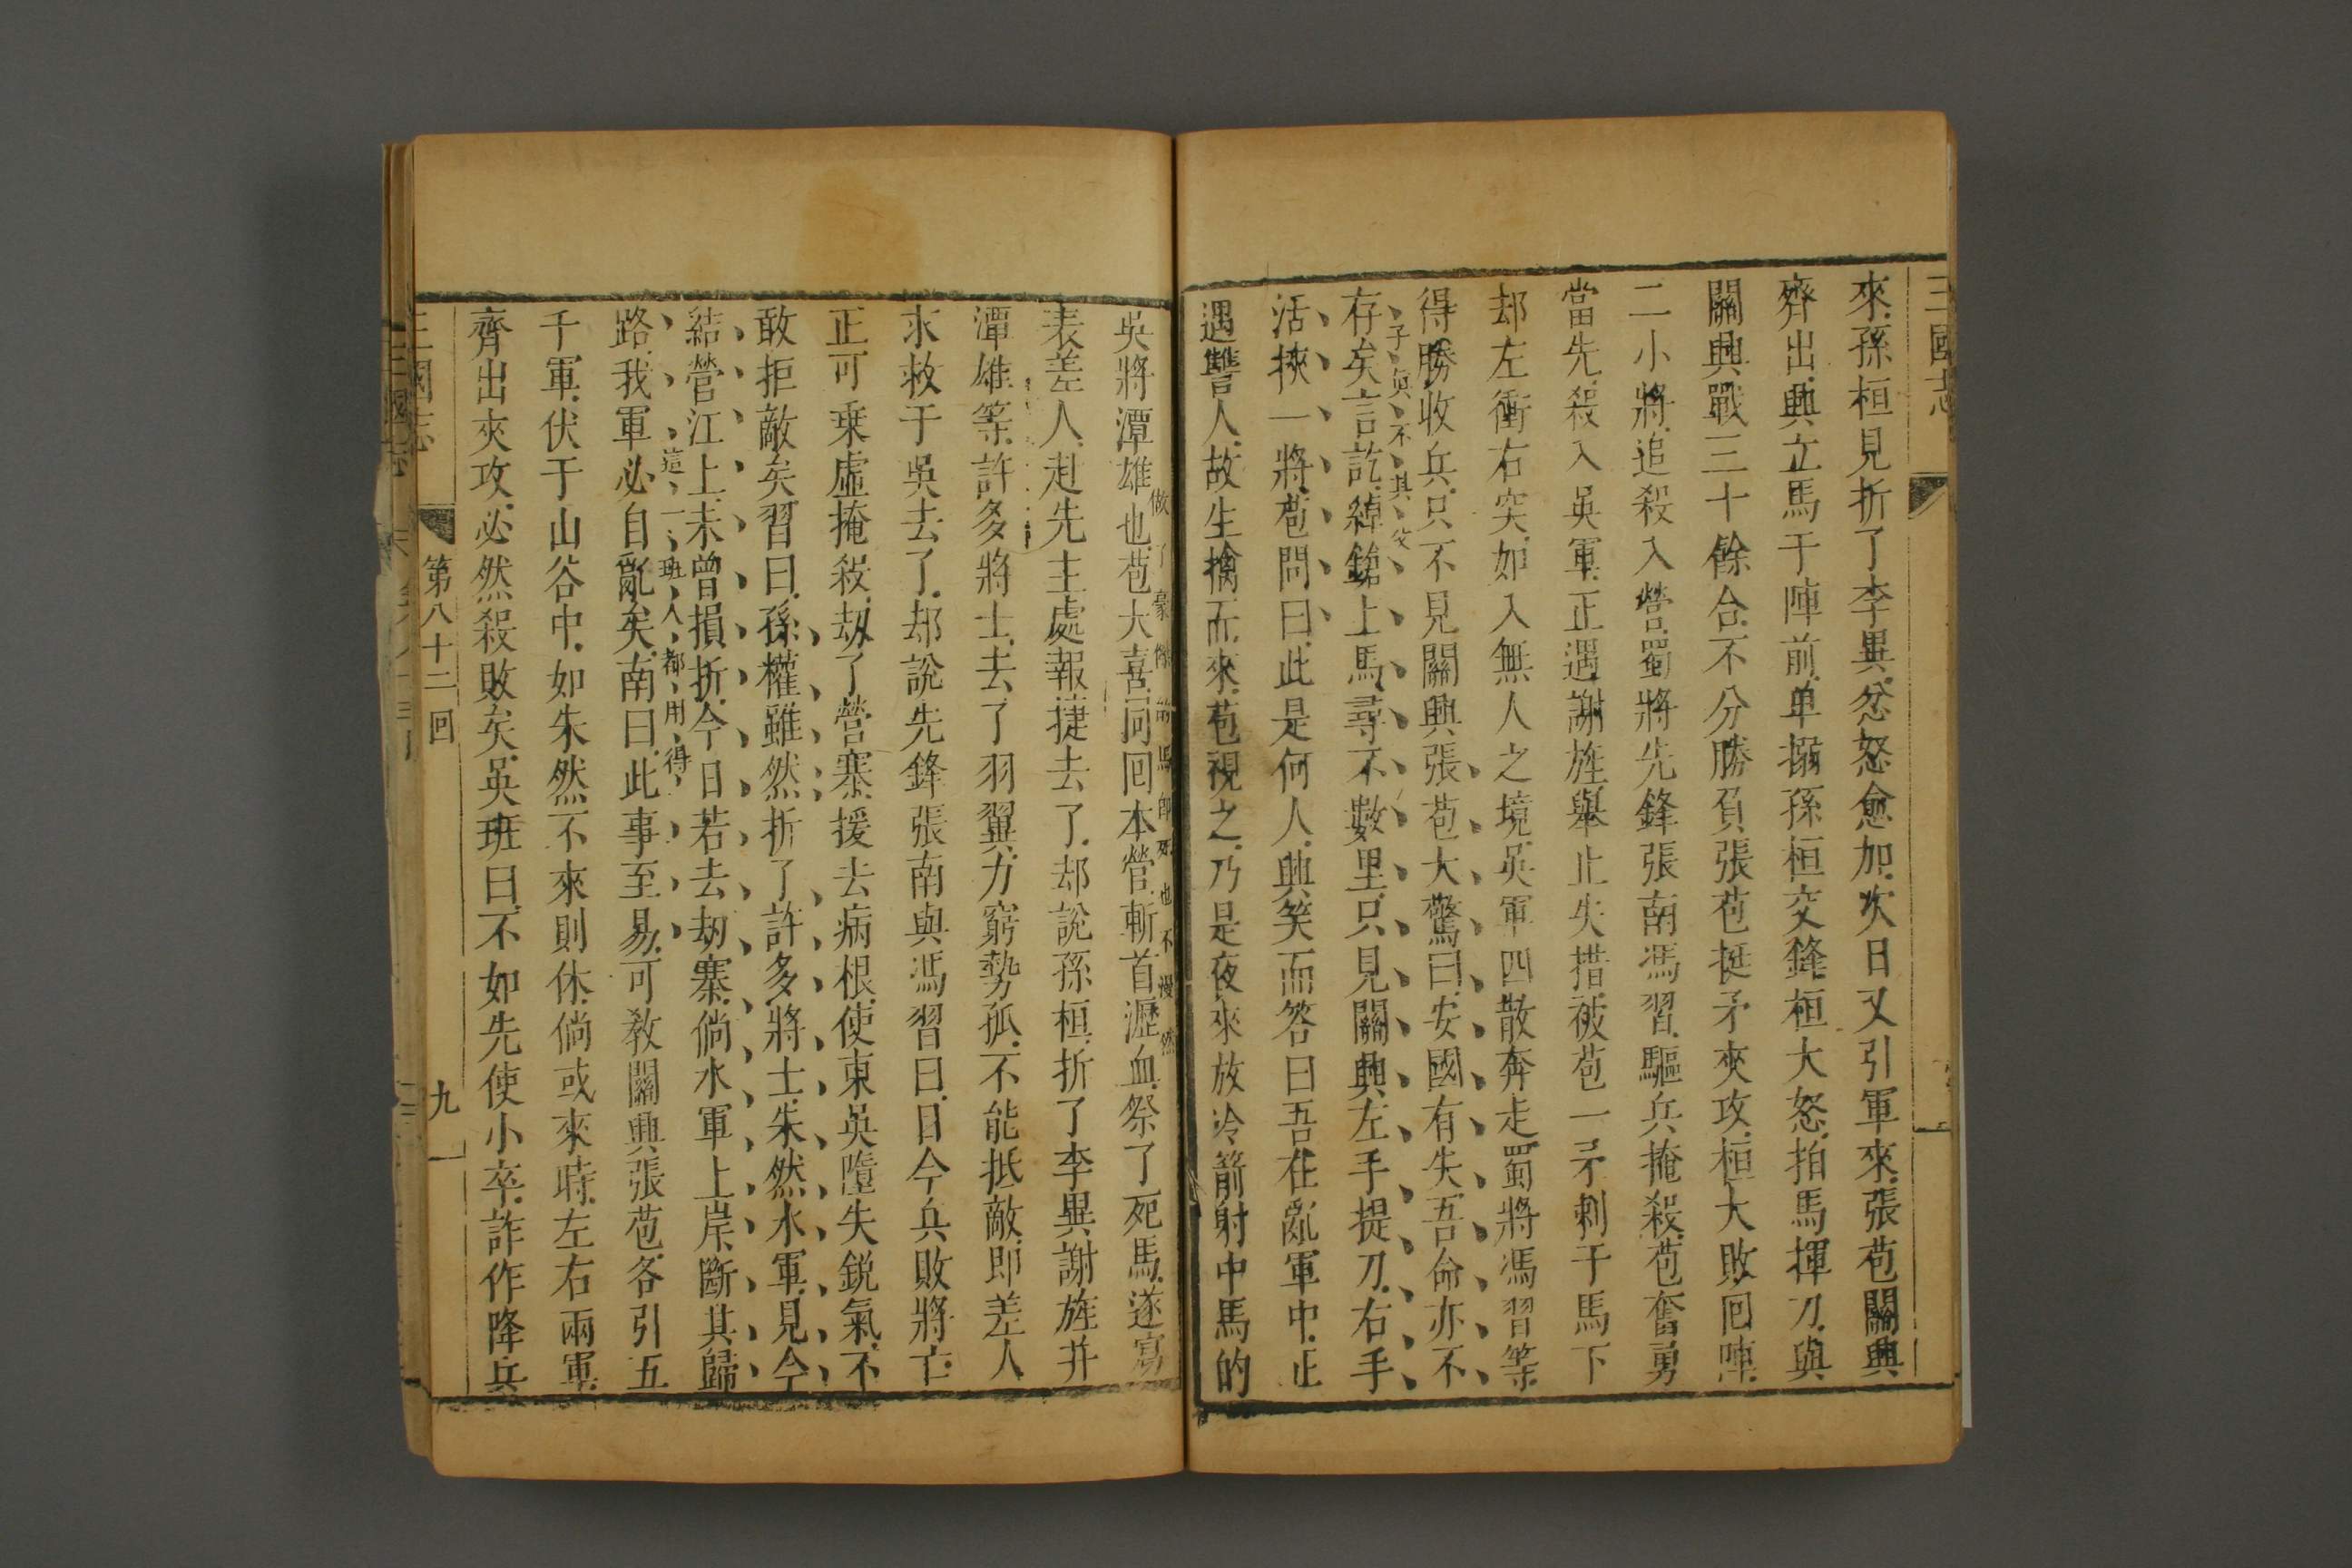 三國志
來孫桓見折了李異忿怒愈加次日又引軍來張苞關興
齊出興立馬于陣前单搦孫桓交鋒桓大怒拍馬揮刀與
關興戰三十餘合不分勝負張苞挺矛夾攻桓大敗回陣
二小將追殺入營蜀將先鋒張南馮習驅兵掩殺苞奮勇
當先殺入吳軍正遇謝旌舉止失措被苞一矛刺于馬下
却左衝右突如入無人之境吳軍四散奔走蜀將馮習等
得勝收兵只不見關興張苞大驚曰安國有失吾命亦不
子真不其父
存矣言訖綽鎗上馬尋不數里只見關興左手提刀右手
活挾一將苞問曰此是何人興笑而答曰吾在亂軍中正
遇讐人故生擒而來苞視之乃是夜來放冷箭射中馬的
吳將潭雄也苞大喜同回本營斬首瀝血祭了死馬遂寫
表差人赴先主處報捷去了却說孫桓折了李異謝旌并
潭雄等許多將士去了羽翼力窮勢孤不能抵敵即差人
求救于吳去了却說先鋒張南與馮習曰目今兵敗將亡
正可乗虛掩殺劫了營寨援去病根使東吳墮失銳氣不
敢拒敵矣習曰孫權雖然折了許多將士朱然水軍見今
結營江上未曾損折今日若去劫寨倘水軍上岸斷其歸
這一班人都用得
路我軍必自亂矣南曰此事至易可教關興張苞各引五
千軍伏于山谷中如朱然不來則休倘或來時左右兩軍
齊出夾攻必然殺敗矣吳班曰不如先使小卒詐作降兵
三國志 第八十二回 九